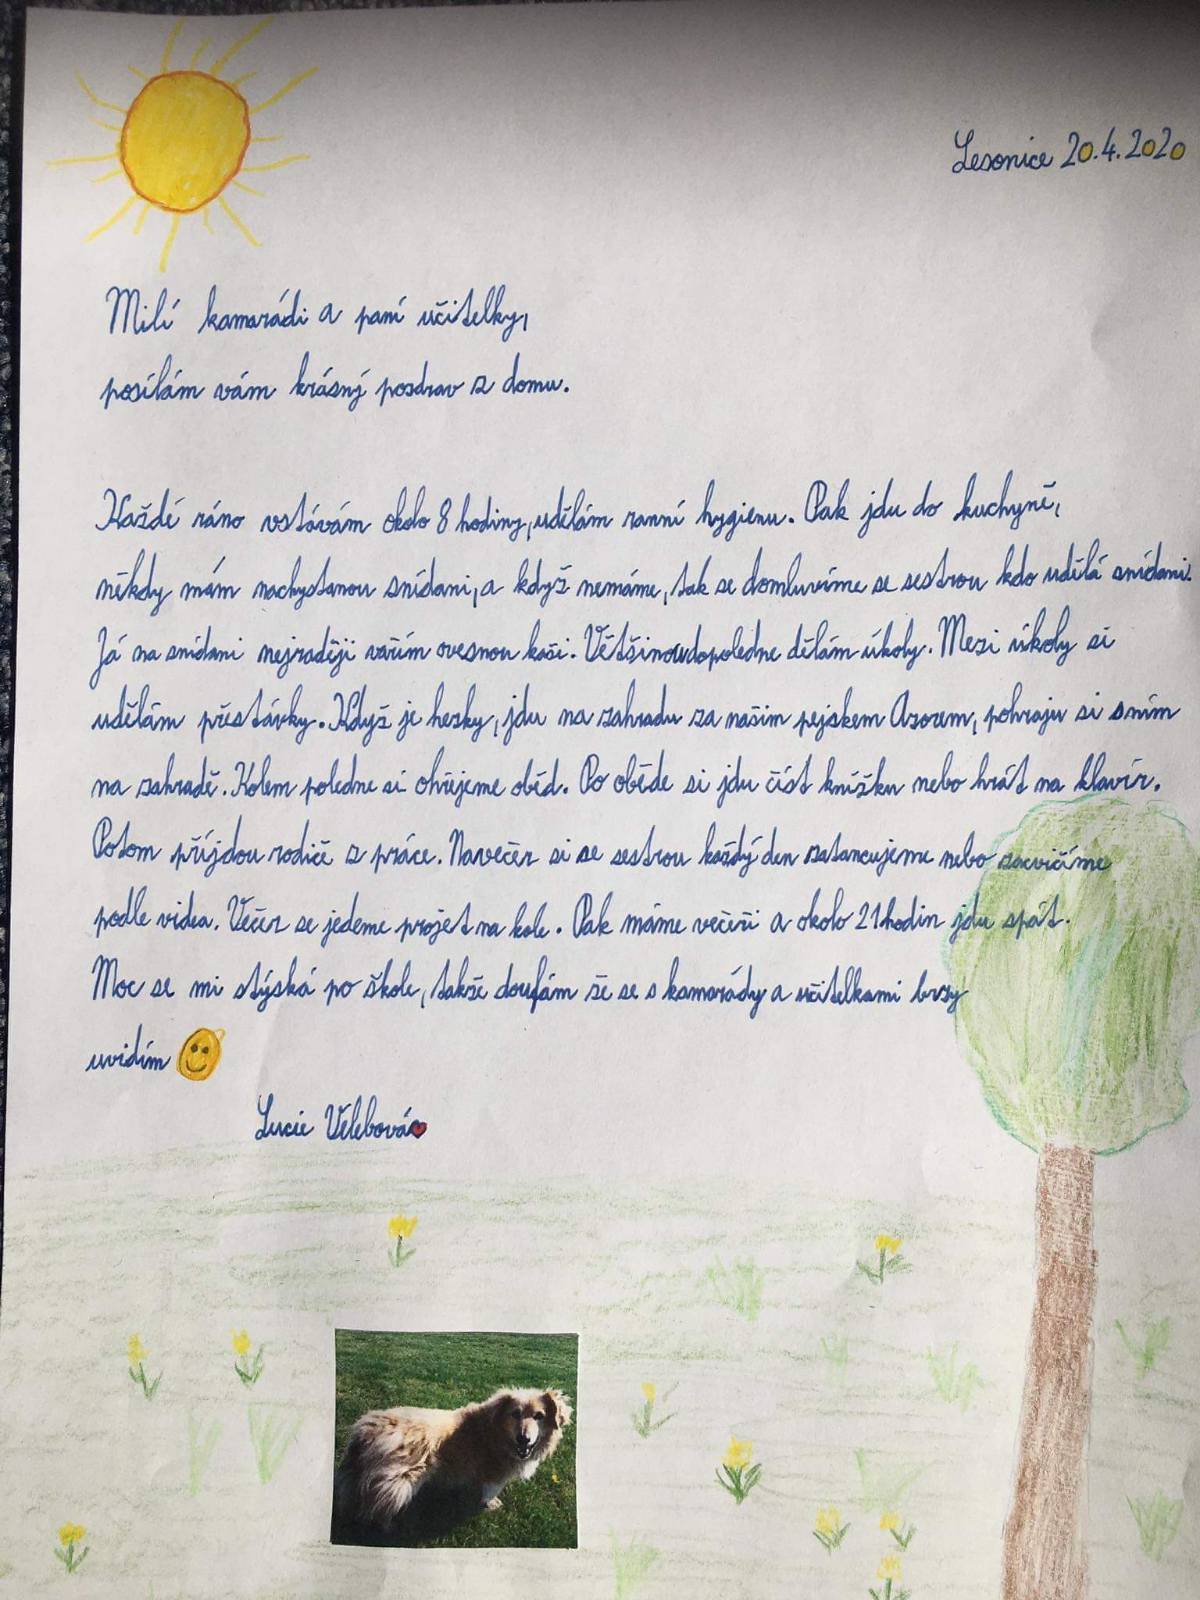 Lesonice 20.4.2020
Milí kamarádi a paní učitelky,
posílám vám krásný pozdrav z domu.
Každé ráno vstávám okolo 8 hodiny, udělám ranní hygienu. Pak jdu do kuchyně,
někdy mám nachystanou snídani, a když nemáme, tak se domluvíme se sestrou kdo udělá snídani.
Já na snídani nejraději vařím ovesnou kaši. Většinou dopoledne dělám úkoly. Mezi úkoly si
udělám přestávky. Když je hezky, jdu na zahradu za našim pejskem Azorem, pohraju si s ním
na zahradě. Kolem poledne si ohřejeme oběd. Po obědě si jdu číst knížku nebo hrát na klavír.
Potom příjdou rodiče z práce. Navečer si se sestrou každý den zatancujeme nebo zacvičíme
podle videa. Večer se jedeme projet na kole. Pak máme večeři a okolo 21 hodin jdu spát.
Moc se mi stýská po škole, takže doufám že se s kamarády a učitelkami brzy
uvidím
Lucie Vélebová